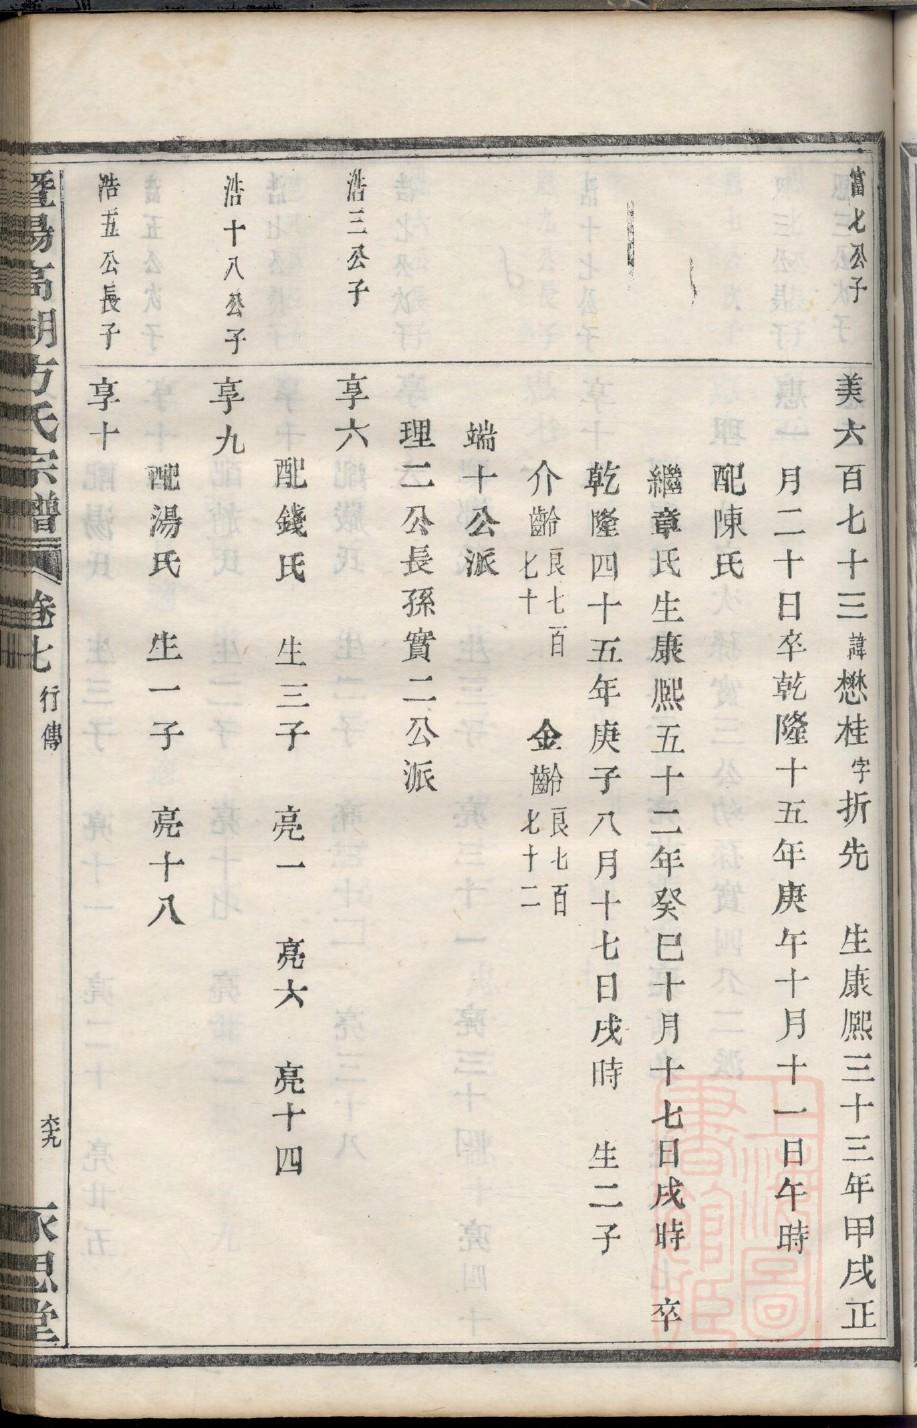 富七公子
美六百七十三諱懋桂字折先 生康熈三十三年甲戌正
月二十日卒乾隆十五年庚午十月十一日午時
配陳氏
繼章氏生康熈五十二年癸巳十月十七日戌時 卒
乾隆四十五年庚子八月十七日戌時 生二子
介齡艮七百七十 金齡艮七百七十二
端十公派
理二公長孫實二公派
浩三公子
享六
配錢氏 生三子 亮一 亮六 亮十四
浩十八公子
享九
配湯氏 生一子 亮十八
浩五公長子
享十
暨陽高湖方氏宗譜 卷七 行傳 六九 永思堂